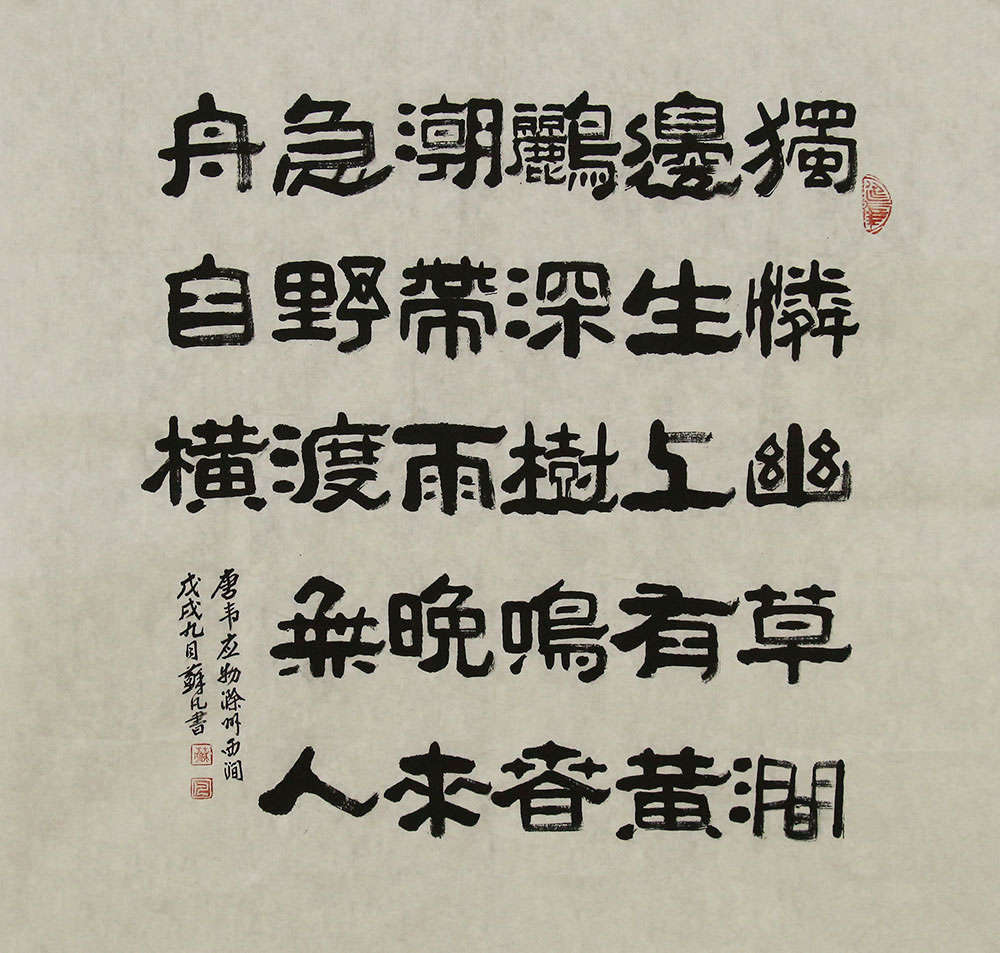 獨憐幽草澗
邊生上有黃
鸝深樹鳴春
潮帶雨晚來
急野渡無人
舟自橫
唐韦应物滁州西涧
戊戌九月蘇凡書